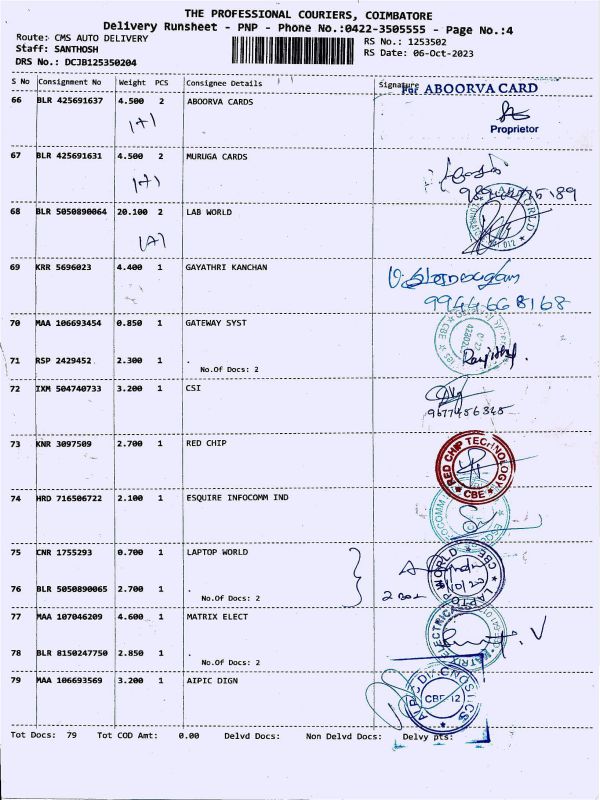 THE PROFESSIONAL COURIERS, COIMBATORE
Delivery Runsheet - PNP - Phone No.:0422-3505555 - Page No.:4
Route: CMS AUTO DELIVERY
Staff: SANTHOSH
DRS No.: DCJB125350204
RS No.: 1253502
RS Date: 06-Oct-2023
S No Consignment No Weight PCS Consignee Details Signature
For ABOORVA CARD
66 BLR 425691637 4.500 2 ABOORVA CARDS
(A)
Proprietor
67 BLR 425691631 4.500 2 MURUGA CARDS
(A)
68 BLR 5050890064 20.100 2 LAB WORLD
(A)
69 KRR 5696023 4.400 1 GAYATHRI KANCHAN
9944668168
70 MAA 106693454 0.850 1 GATEWAY SYST
71 RSP 2429452 2.300 1 .
No.Of Docs: 2
72 IXM 504740733 3.200 1 CSI
73 KNR 3097509 2.700 1 RED CHIP
RED CHIP TECHNOLOGY
CBE
74 HRD 716506722 2.100 1 ESQUIRE INFOCOMM IND
75 CNR 1755293 0.700 1 LAPTOP WORLD
LAPTOP WORLD
CBE
76 BLR 5050890065 2.700 1 .
No.Of Docs: 2
2 Box
77 MAA 107046209 4.600 1 MATRIX ELECT
78 BLR 8150247750 2.850 1 .
No.Of Docs: 2
79 MAA 106693569 3.200 1 AIPIC DIGN
CBE-12
Tot Docs: 79 Tot COD Amt: 0.00 Delvd Docs: Non Delvd Docs: Delvy pts: